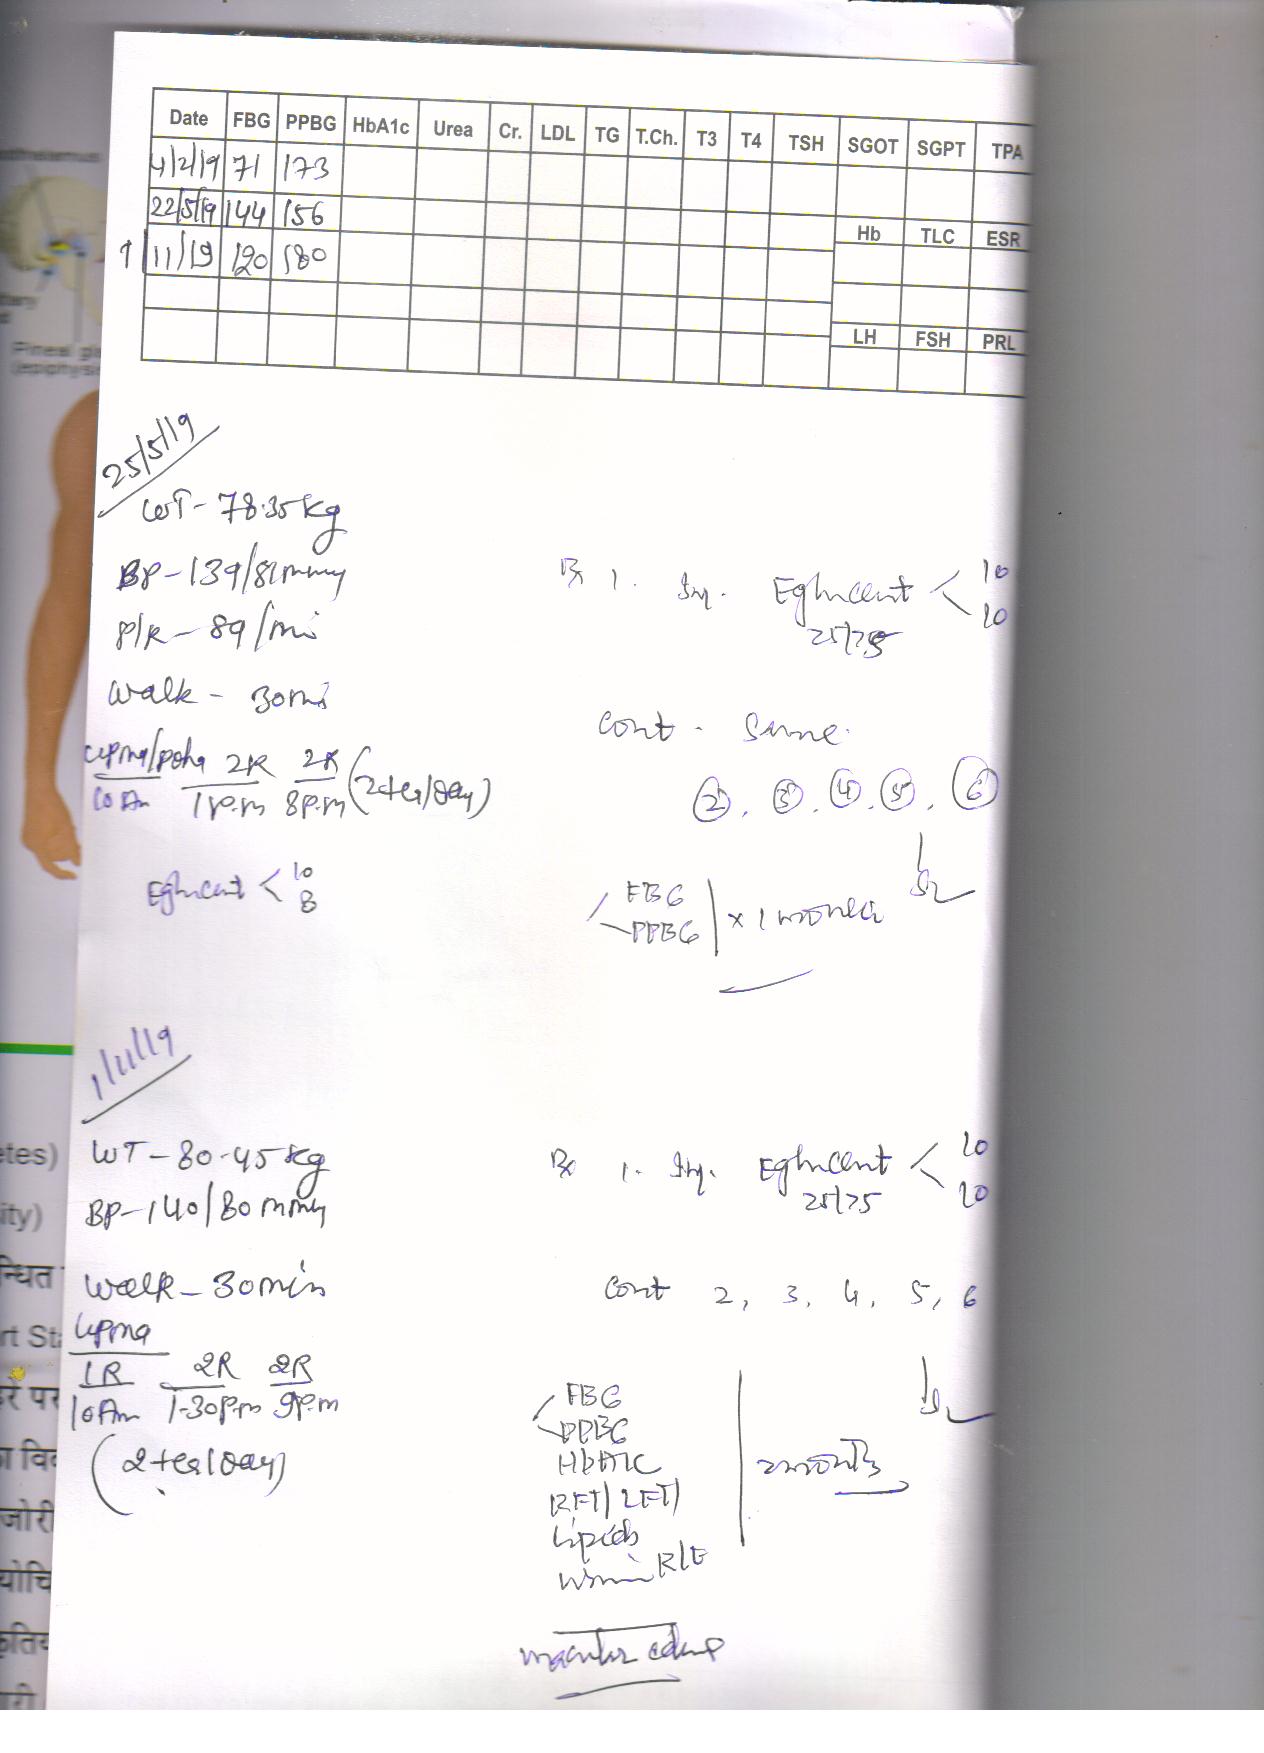 Date FBG PPBG HbA1c Urea Cr. LDL TG T.Ch. T3 T4 TSH SGOT SGPT TPA
4/2/19 71 173
22/5/19 144 156
Hb TLC ESR
1/11/19 120 180
LH FSH PRL
Pineal
25/5/19
WT - 78.35 kg
BP - 139/81 mmHg
P/R - 89/mi
walk - 30 mi
upma/poha 2R 2R (2 tea/day)
10 Am 1 P.m 8 P.m
< 10
8
Rx 1. Inj. < 10
25/75 10
Cont - Same
2, 3, 4, 5, 6
FBG
PPBG
x 1 month
1/11/19
WT - 80.45 kg
BP - 140/80 mmHg
walk - 30 min
upma
1R 2R 2R
10 Am 1-30 P.m 9 P.m
(2 tea/day)
Rx 1. Inj. < 10
25/75 10
Cont 2, 3, 4, 5, 6
FBG
PPBG
HbA1C
RFT/LFT/
Lipids
R/E
2 months
macular edema
etes)
ity)
न्धित
rt